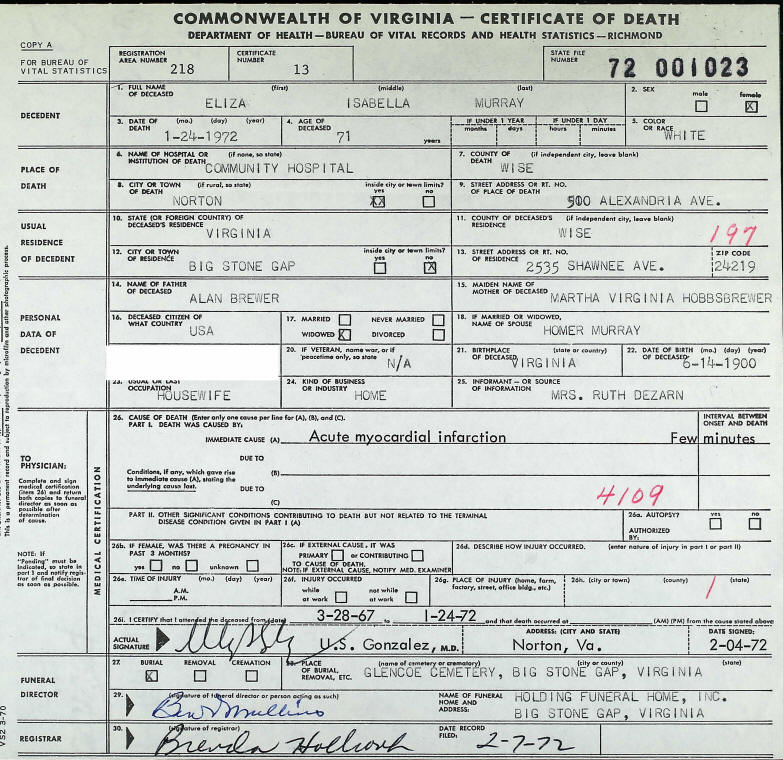 COMMONWEALTH OF VIRGINIA — CERTIFICATE OF DEATH
DEPARTMENT OF HEALTH — BUREAU OF VITAL RECORDS AND HEALTH STATISTICS — RICHMOND
COPY A
FOR BUREAU OF VITAL STATISTICS
REGISTRATION AREA NUMBER 218
CERTIFICATE NUMBER 13
STATE FILE NUMBER 72 001023
DECEDENT
1. FULL NAME OF DECEASED (first) (middle) (last)
ELIZA ISABELLA MURRAY
2. SEX male female X
3. DATE OF DEATH (mo.) (day) (year) 1-24-1972
4. AGE OF DECEASED 71 years
IF UNDER 1 YEAR months days
IF UNDER 1 DAY hours minutes
5. COLOR OR RACE WHITE
PLACE OF DEATH
6. NAME OF HOSPITAL OR INSTITUTION OF DEATH (if none, so state) COMMUNITY HOSPITAL
7. COUNTY OF DEATH (if independent city, leave blank) WISE
8. CITY OR TOWN OF DEATH (if rural, so state) NORTON
inside city or town limits? yes XX no
9. STREET ADDRESS OR RT. NO. OF PLACE OF DEATH 500 ALEXANDRIA AVE.
USUAL RESIDENCE OF DECEDENT
10. STATE (OR FOREIGN COUNTRY) OF DECEASED'S RESIDENCE VIRGINIA
11. COUNTY OF DECEASED'S RESIDENCE (if independent city, leave blank) WISE
197
12. CITY OR TOWN OF RESIDENCE BIG STONE GAP
inside city or town limits? yes no X
13. STREET ADDRESS OR RT. NO. OF RESIDENCE 2535 SHAWNEE AVE.
ZIP CODE 24219
PERSONAL DATA OF DECEDENT
14. NAME OF FATHER OF DECEASED ALAN BREWER
15. MAIDEN NAME OF MOTHER OF DECEASED MARTHA VIRGINIA HOBBSBREWER
16. DECEASED CITIZEN OF WHAT COUNTRY USA
17. MARRIED NEVER MARRIED
WIDOWED X DIVORCED
18. IF MARRIED OR WIDOWED, NAME OF SPOUSE HOMER MURRAY
20. IF VETERAN, name war, or if peacetime only, so state N/A
21. BIRTHPLACE OF DECEASED (state or country) VIRGINIA
22. DATE OF BIRTH OF DECEASED (mo.) (day) (year) 6-14-1900
23. USUAL OR LAST OCCUPATION HOUSEWIFE
24. KIND OF BUSINESS OR INDUSTRY HOME
25. INFORMANT — OR SOURCE OF INFORMATION MRS. RUTH DEZARN
TO PHYSICIAN:
Complete and sign medical certification (item 26) and return both copies to funeral director as soon as possible after determination of cause.
NOTE: IF "Pending" must be indicated, so state in part I and notify registrar of final decision as soon as possible.
MEDICAL CERTIFICATION
26. CAUSE OF DEATH (Enter only one cause per line for (A), (B), and (C).
PART I. DEATH WAS CAUSED BY:
INTERVAL BETWEEN ONSET AND DEATH
IMMEDIATE CAUSE (A) Acute myocardial infarction Few minutes
DUE TO
Conditions, if any, which gave rise to immediate cause (A), stating the underlying cause last.
(B)
DUE TO
(C)
4109
PART II. OTHER SIGNIFICANT CONDITIONS CONTRIBUTING TO DEATH BUT NOT RELATED TO THE TERMINAL DISEASE CONDITION GIVEN IN PART I (A)
26a. AUTOPSY? yes no
AUTHORIZED BY:
26b. IF FEMALE, WAS THERE A PREGNANCY IN PAST 3 MONTHS?
yes no unknown
26c. IF EXTERNAL CAUSE, IT WAS
PRIMARY or CONTRIBUTING
TO CAUSE OF DEATH.
NOTE: IF EXTERNAL CAUSE, NOTIFY MED. EXAMINER
26d. DESCRIBE HOW INJURY OCCURRED. (enter nature of injury in part I or part II)
26e. TIME OF INJURY (mo.) (day) (year)
A.M.
P.M.
26f. INJURY OCCURRED
while at work not while at work
26g. PLACE OF INJURY (home, farm, factory, street, office bldg., etc.)
26h. (city or town) (county) (state)
26i. I CERTIFY that I attended the deceased from (date) 3-28-67 to 1-24-72 and that death occurred at (AM) (PM) from the cause stated above
ACTUAL SIGNATURE U.S. Gonzalez, M.D.
ADDRESS: (CITY AND STATE) Norton, Va.
DATE SIGNED: 2-04-72
FUNERAL DIRECTOR
27. BURIAL X REMOVAL CREMATION
28. PLACE OF BURIAL, REMOVAL, ETC. (name of cemetery or crematory) (city or county) (state)
GLENCOE CEMETERY, BIG STONE GAP, VIRGINIA
29. (signature of funeral director or person acting as such)
Ben Mullins
NAME OF FUNERAL HOME AND ADDRESS: HOLDING FUNERAL HOME, INC.
BIG STONE GAP, VIRGINIA
REGISTRAR
30. (signature of registrar)
Brenda
DATE RECORD FILED: 2-7-72
VS2 3-70
This is a permanent record and subject to reproduction by microfilm and other photographic process.